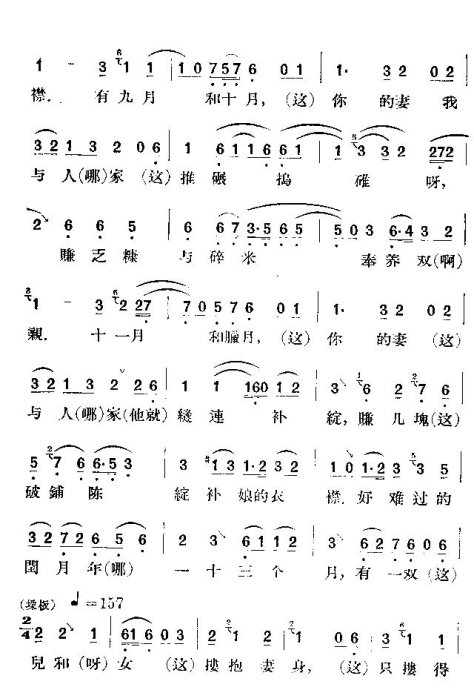 1 - 3 1 1 | 1 0 7 5 7 6 0 1 | 1· 3 2 0 2
襟. 有九月 和十月, (这) 你 的妻 我
3 2 1 3 2 0 6 | 1 6 1 1 1 6 6 1 | 1 3 3 3 2 2 7 2
与 人(哪)家 (这) 推 碾 捣 碓 呀,
2 6 6 5 | 6 6 7 3·5 6 5 | 5 0 3 6·4 3 2
赚 芝 糠 与 碎 米 奉 养 双(啊)
1 - 3 2 2 7 | 7 0 5 7 6 0 1 | 1· 3 2 0 2
親. 十一月 和臘月, (这) 你 的妻 (这)
3 2 1 3 2 2 6 | 1 1 1 6 0 1 2 | 3 6 2 7 6
与 人(哪)家(他就) 縫 連 补 綻, 賺 几 塊(这)
5 7 6 6·5 3 | 3 1 3 1·2 3 2 | 1 0 1·2 3 3 5
破 鋪 陈 綻 补 娘的 衣 襟. 好 难过 的
3 2 7 2 6 5 6 | 2 3 6 1 1 1 2 | 3 6 2 7 6 0 6
閏 月 年(哪) 一 十 三 个 月, 有 一 双 (这)
(垛板) ♩=157
2/4 2 2 1 | 6 1 6 0 3 | 2 1 2 1 | 1 0 6 | 3 1 1
兒 和 (呀) 女 (这) 摟 抱 妻 身, (这) 只 摟 得